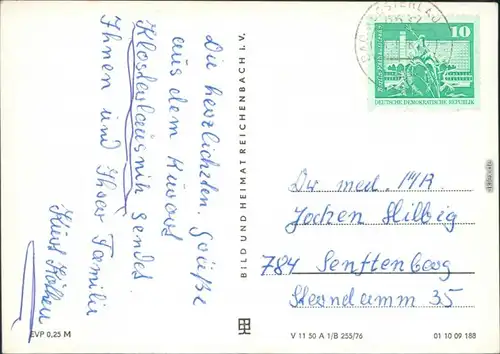 Die herzlichsten Grüße
aus dem Kurort
Klosterlausnitz sendet
Ihnen und Ihrer Familie
Kurt
EVP 0,25 M
BILD UND HEIMAT REICHENBACH I. V.
BAD KLOSTERLAU
10
DEUTSCHE DEMOKRATISCHE REPUBLIK
Dr med.
Jochen Hilbig
784 Senftenberg
Sterndamm 35
V 11 50 A 1/B 255/76
01 10 09 188